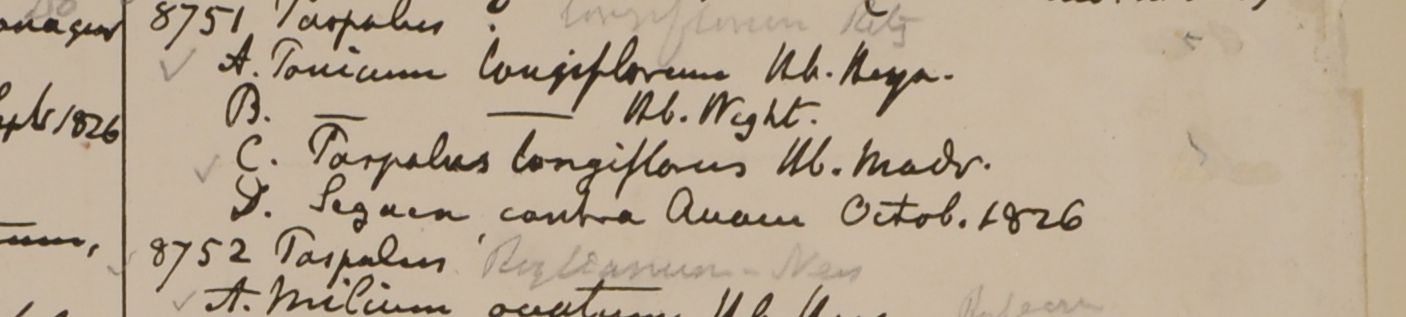 8751 Paspalus longiflorum Retz
A. Panicum longiflorum Hb. Heyn.
B. — — Hb. Wight.
sept 1826
C. Paspalus longiflorus Hb. Madr.
D. Segaen contra Avam Octob. 1826
8752 Paspalus Royleanum - Nees
A. Milium